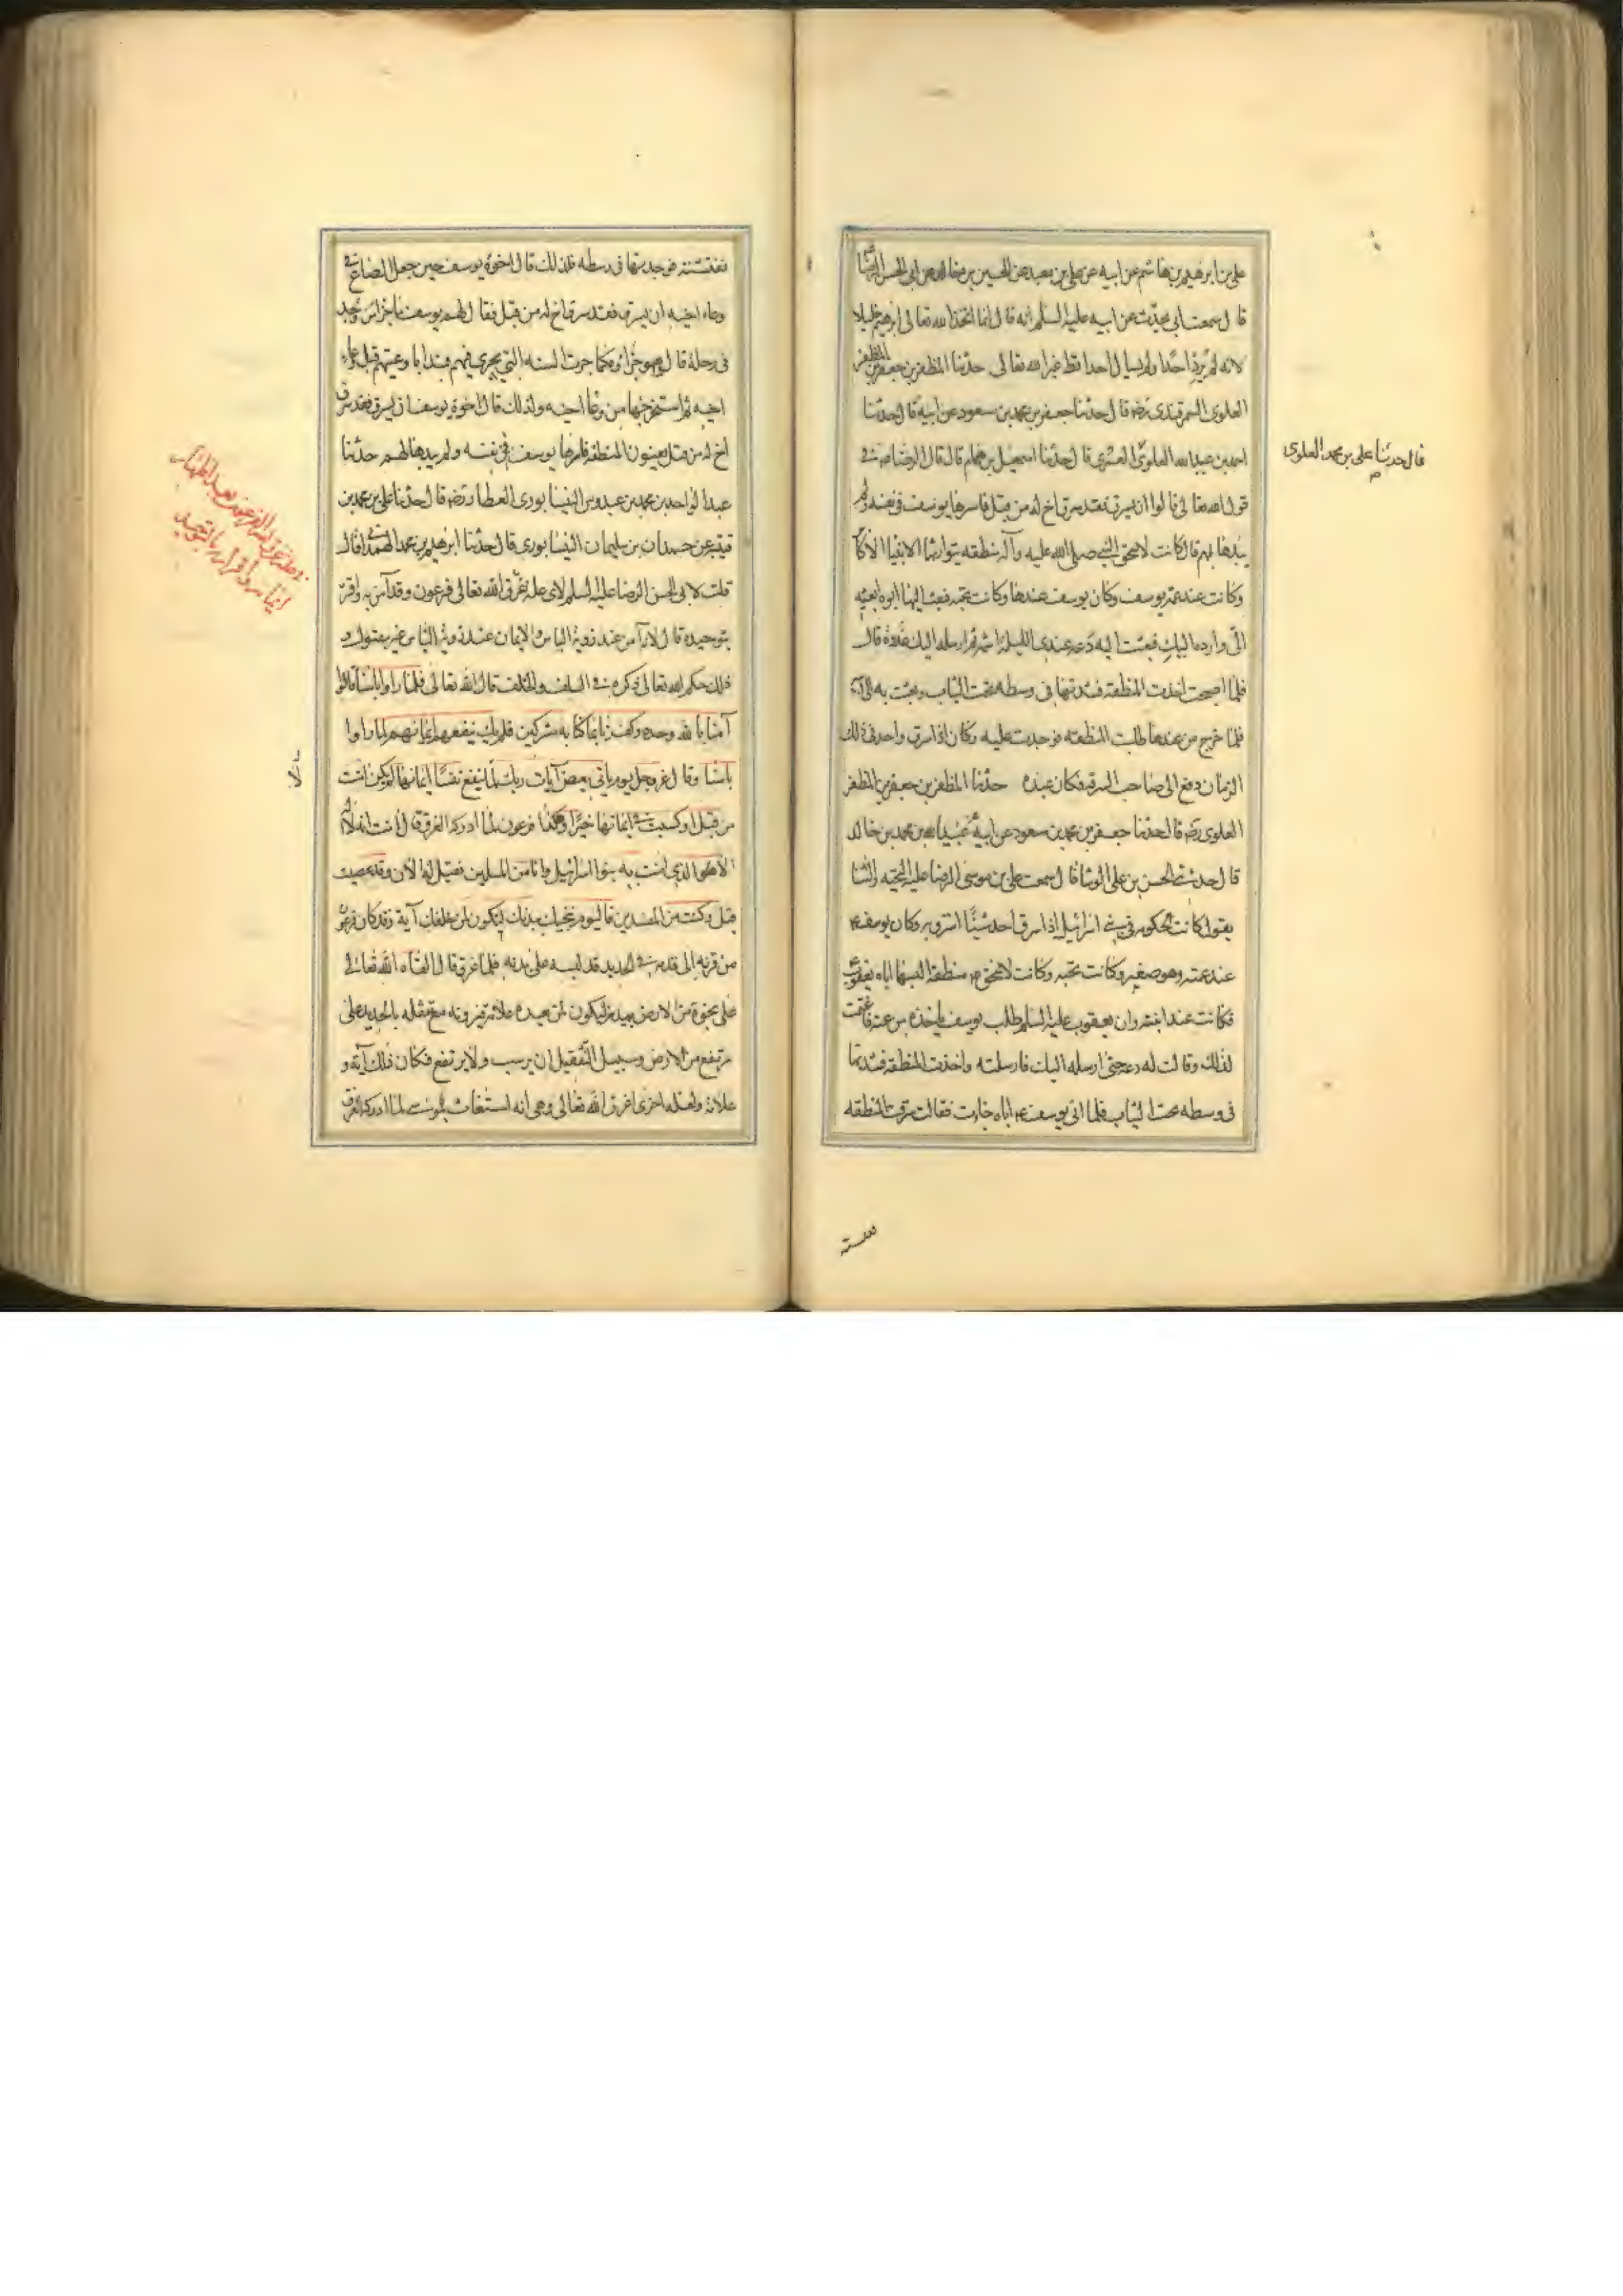 علي بن ابرهيم بن هاشم عن ابيه عن علي بن معبد عن الحسين بن خالد عن ابي الحسن الرضا
قال سمعت ابي يحدث عن ابيه عليه السلم انه قال انما اتخذ الله تعالى ابرهيم خليلا
لانه لم يرد احدا ولم يسال احدا قط غير الله تعالى حدثنا المظفر بن جعفر بن المظفر
العلوي السمرقندي رضه قال حدثنا جعفر بن محمد بن مسعود عن ابيه قال حدثنا
احمد بن عبدالله العلوي العمري قال حدثنا اسمعيل بن همام قال قال الرضا في
قول الله تعالى قالوا ان يسرق فقد سرق اخ له من قبل فاسرها يوسف في نفسه ولم
يبدها لهم قال كانت لاسحق النبي صلى الله عليه وآله منطقه يتوارثها الانبيا الاكابر
وكانت عند عمة يوسف وكان يوسف عندها وكانت تحبه فبعث اليها ابوه ابعثيه
الي وارده اليك فبعثت اليه دعه عندي الليلة اشمه ثم ارسله اليك غدوة قال
فلما اصبحت اخذت المنطقه فشدتها في وسطه تحت الثياب وبعثت به الى ابيه
فلما خرج من عندها طلبت المنطقه فوجدت عليه وكان اذا سرق واحد في ذلك
الزمان دفع الى صاحب السرقه فكان عبده حدثنا المظفر بن جعفر بن المظفر
العلوي رضه قال حدثنا جعفر بن محمد بن مسعود عن ابيه عن عبيدالله بن محمد بن خالد
قال حدثني الحسن بن علي الوشا قال سمعت علي بن موسى الرضا عليه التحيه والثنا
يقول كانت الحكومه في بني اسرائيل اذا سرق احد شيئا استرق به وكان يوسف ع
عند عمته وهو صغير وكانت تحبه وكانت لاسحق ع منطقة البسها اياه يعقوب
فكانت عند ابنته وان يعقوب عليه السلم طلب يوسف ياخذه من عمته فاغتمت
لذلك وقالت له دعه حتى ارسله اليك فارسلته واخذت المنطقه فشدتها
في وسطه تحت الثياب فلما اتى يوسف ع اباه جاءت فقالت سرقت المنطقه
قال حدثنا علي بن محمد العلوي
ففتشته
ففتشته فوجدتها في وسطه فلذلك قال اخوة يوسف حين جعل الصاع في
وعاء اخيه ان يسرق فقد سرق اخ له من قبل فقال لهم يوسف ما جزاء من وجد
في رحله قالوا هو جزاؤه كما جرت السنه التي تجري فيهم فبدا باوعيتهم قبل وعاء
اخيه ثم استخرجها من وعاء اخيه ولذلك قال اخوة يوسف ان يسرق فقد سرق
اخ له من قبل يعنون المنطقه فاسرها يوسف في نفسه ولم يبدها لهم حدثنا
عبد الواحد بن محمد بن عبدوس النيسابوري العطار رضه قال حدثنا علي بن محمد بن
قتيبه عن حمدان بن سليمان النيسابوري قال حدثنا ابرهيم بن محمد الهمداني قال
قلت لابي الحسن الرضا عليه السلم لاي علة غرق الله تعالى فرعون وقد آمن به واقر
بتوحيده قال لانه آمن عند رؤية الباس والايمان عند رؤية الباس غير مقبول و
ذلك حكم الله تعالى ذكره في السلف والخلف قال الله تعالى فلما راوا باسنا قالوا
آمنا بالله وحده وكفرنا بما كنا به مشركين فلم يك ينفعهم ايمانهم لما راوا
باسنا وقال عز وجل يوم ياتي بعض آيات ربك لا ينفع نفسا ايمانها لم تكن آمنت
من قبل او كسبت في ايمانها خيرا وهكذا فرعون لما ادركه الغرق قال آمنت انه لا اله
الا الذي آمنت به بنوا اسرائيل وانا من المسلمين فقيل له الآن وقد عصيت
قبل وكنت من المفسدين فاليوم ننجيك ببدنك لتكون لمن خلفك آية وقد كان فرعون
من قرنه الى قدمه في الحديد قد لبسه على بدنه فلما غرق القاه الله تعالى
على نجوة من الارض ببدنه ليكون لمن بعده علامة فيرونه مع تثقله بالحديد على
مرتفع من الارض وسبيل الثقيل ان يرسب ولا يرتفع فكان ذلك آية و
علامة ولعلة اخرى اغرق الله تعالى وهي انه استغاث بموسى لما ادركه الغرق